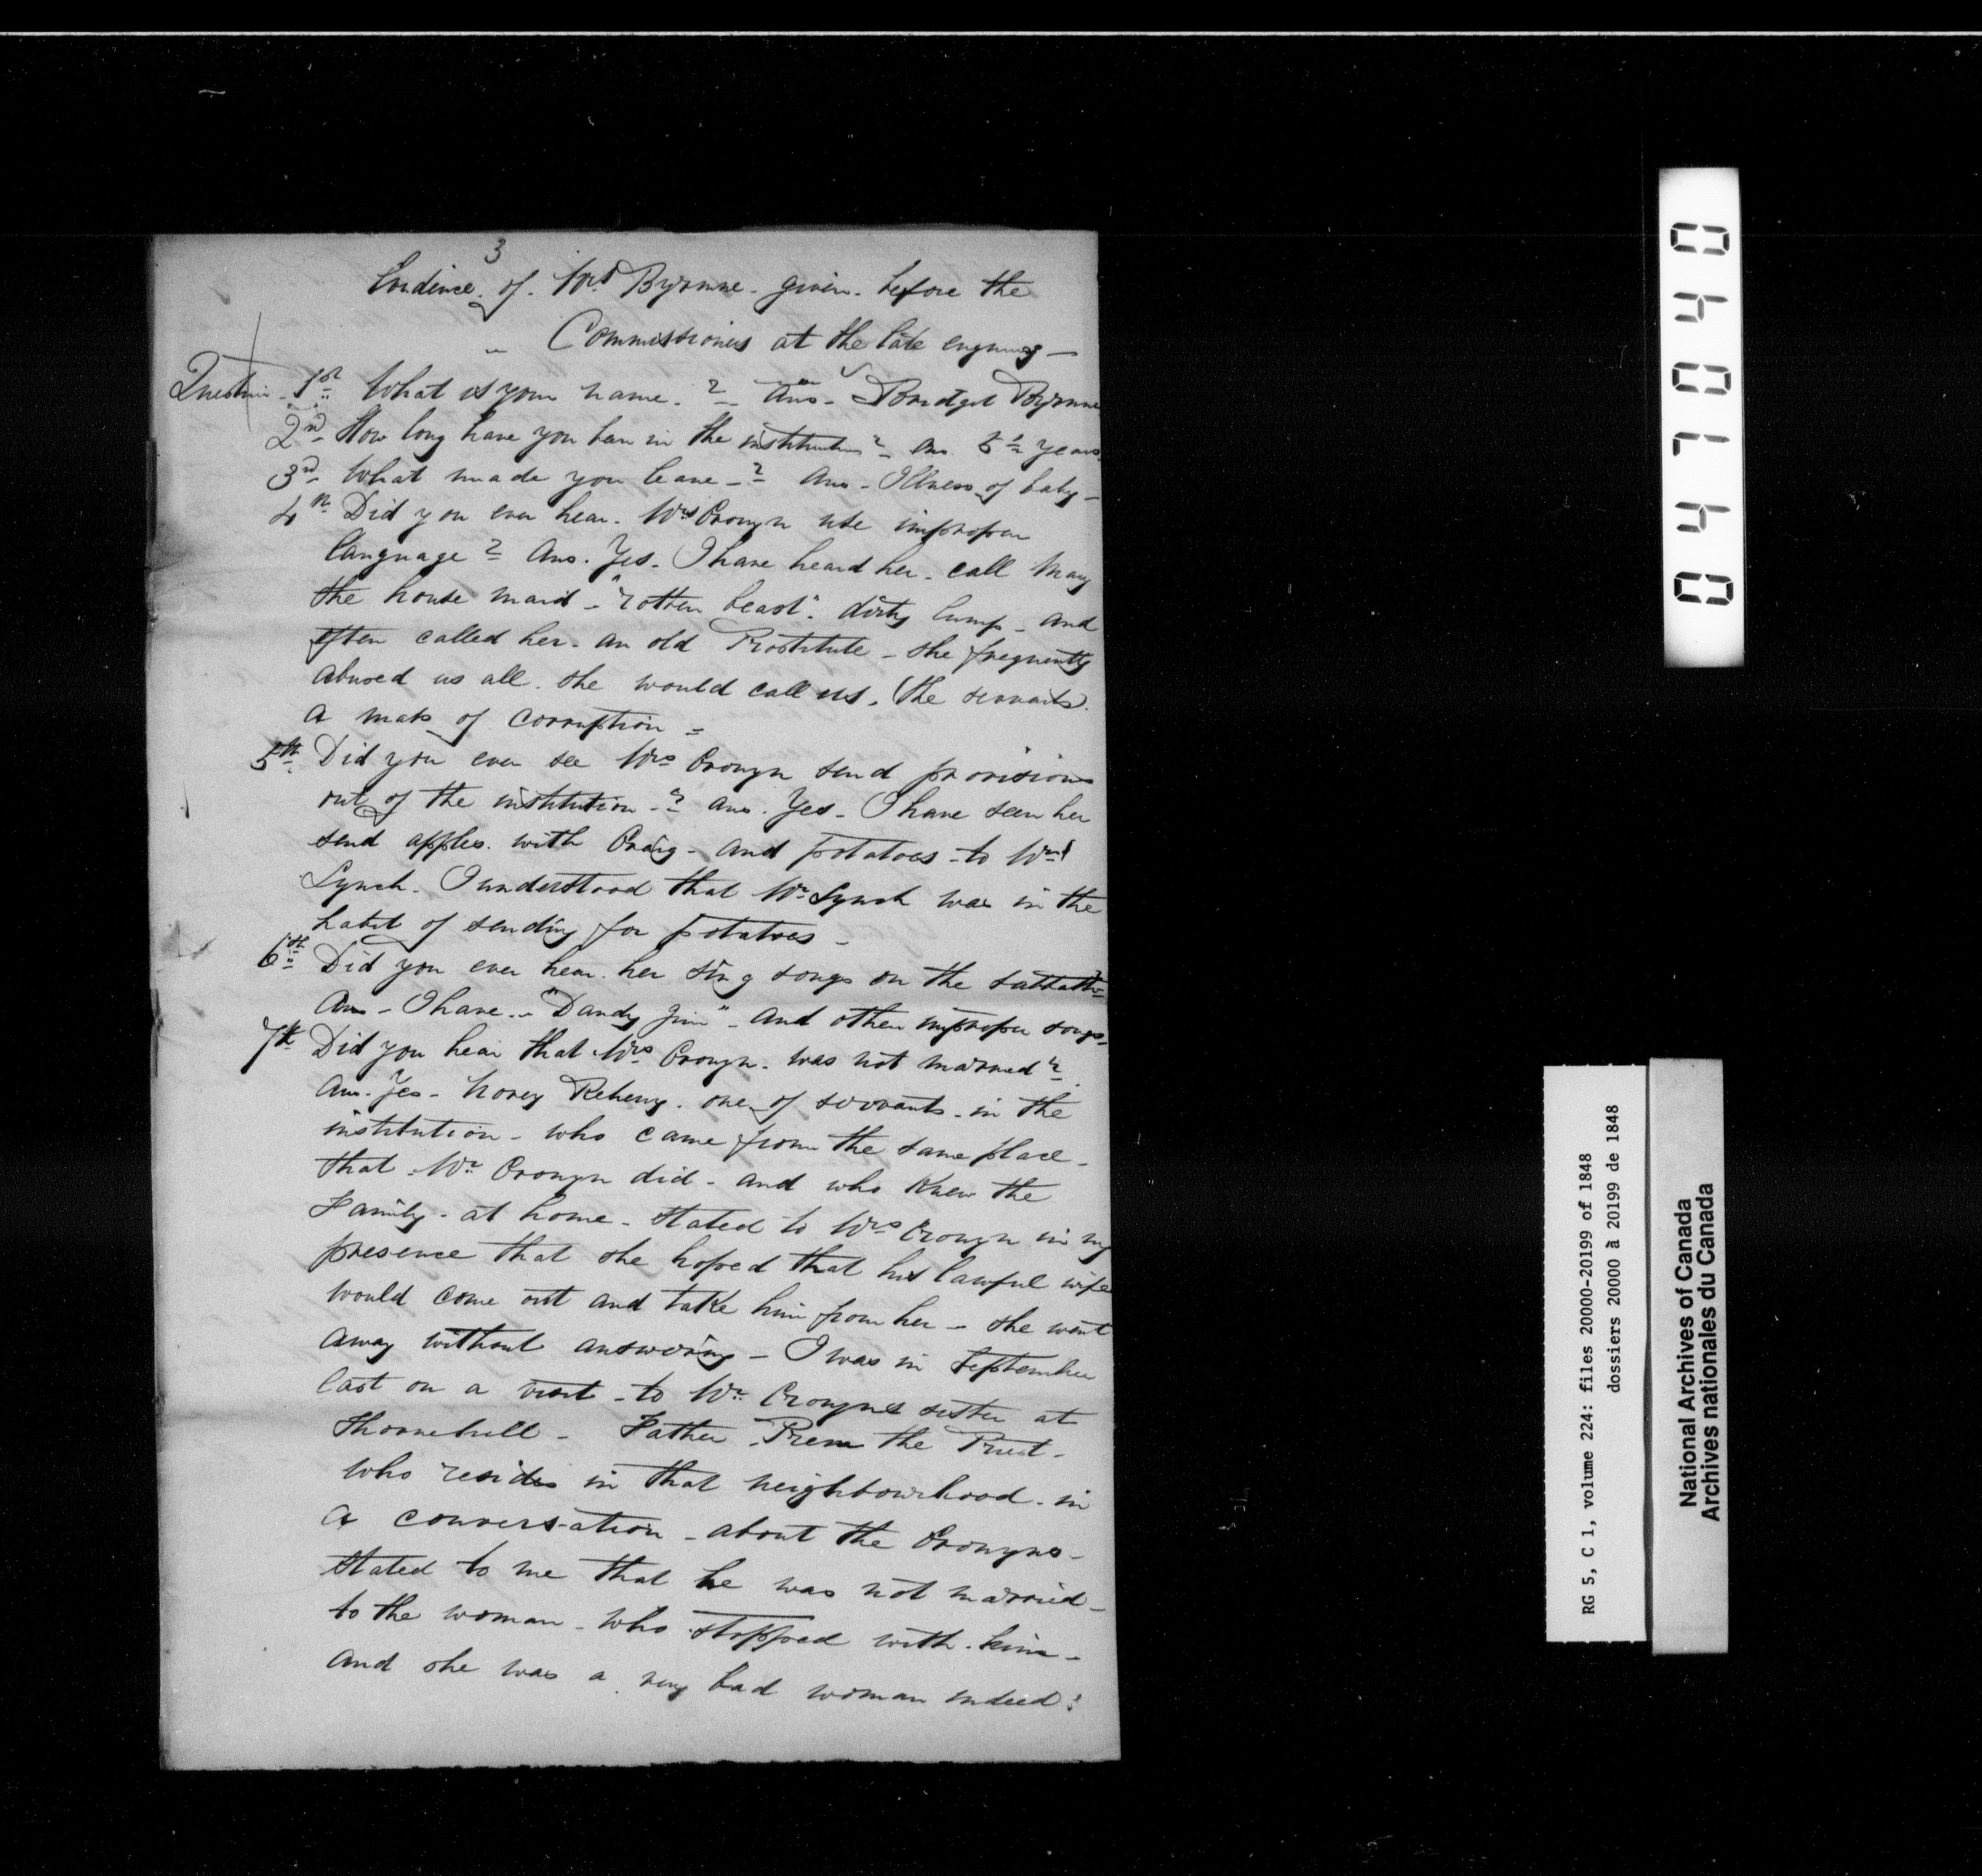 3
Evidence of Mrs Byrnne given before the
Commissioners at the late enquiry —
Question 1st What is your name. ? Ans - Bridget Byrnne
2nd How long have you been in the institution ? Ans. 5½ years.
3rd What made you leave - ? Ans - Illness of baby -
4th Did you ever hear Mrs Cronyn use improper
language ? Ans. Yes. I have heard her call Mary
the house maid - "rotten beast". dirty lump - and
often called her an old Prostitute - she frequently
abused us all. she would call us, (the servants)
a mass of corruption -
5th Did you ever see Mrs Cronyn send provisions
out of the institution - ? Ans. Yes - I have seen her
send apples with Craig - and potatoes - to Mrs
Lynch. I understood that Mr Lynch was in the
habit of sending for potatoes -
6th Did you ever hear her sing songs on the sabbath
Ans - I have - "Dandy Jim" - and other improper songs.
7th Did you hear that Mrs Cronyn was not married ?
Ans. Yes - one of servants in the
institution - who came from the same place -
that Mr Cronyn did - and who knew the
Family - at home - stated to Mrs Cronyn in my
presence that she hoped that his lawful wife
would come out and take him from her - she went
away without answering - I was in September
last on a visit - to Mr Cronyns sister at
Thornehill - Father the Priest -
who resides in that neighbourhood - in
a conversation - about the Cronyns -
stated to me that he was not married -
to the woman - who stopped with him -
and she was a very bad woman indeed !
04 1 7040
RG 5, C 1, volume 224: files 20000-20199 of 1848
dossiers 20000 à 20199 de 1848
National Archives of Canada
Archives nationales du Canada